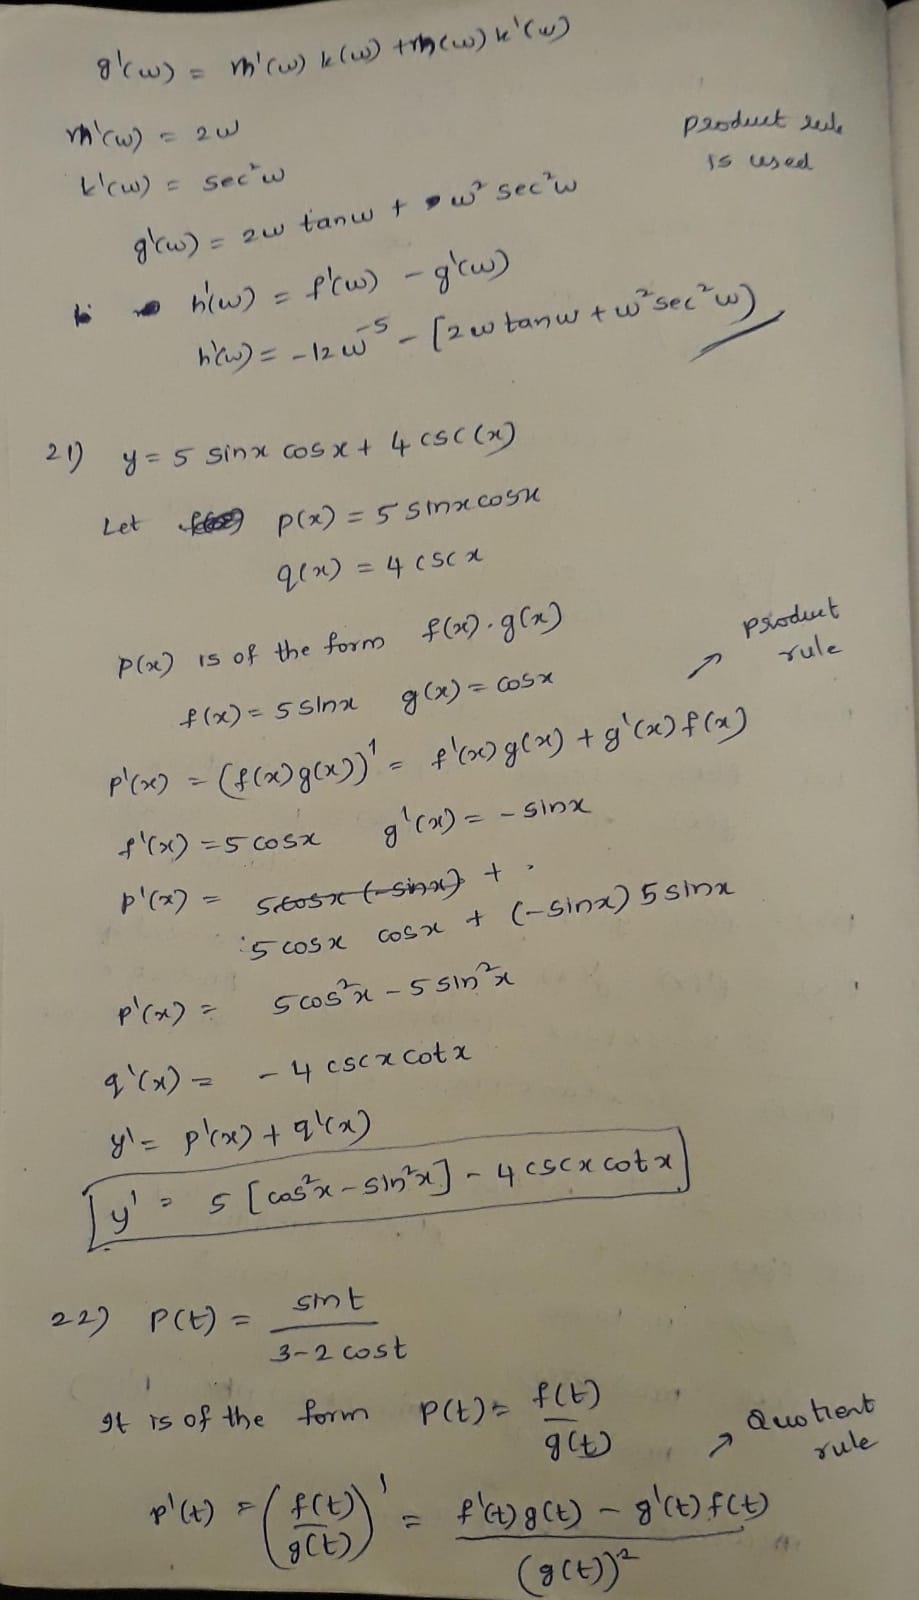 g'(w) = m'(w) k(w) + m(w) k'(w)
m'(w) = 2w
product rule
k'(w) = sec²w
is used
g'(w) = 2w tanw + w² sec²w
h'(w) = f'(w) - g'(w)
h'(w) = -12w⁻⁵ - [2w tanw + w² sec²w]
21) y = 5 sinx cosx + 4 csc(x)
Let p(x) = 5 sinx cosx
q(x) = 4 cscx
p(x) is of the form f(x).g(x)
product
rule
f(x) = 5 sinx g(x) = cosx
p'(x) = (f(x)g(x))' = f'(x)g(x) + g'(x)f(x)
f'(x) = 5 cosx g'(x) = - sinx
p'(x) = 5cosx (-sinx) +
5 cosx cosx + (-sinx) 5 sinx
p'(x) = 5 cos²x - 5 sin²x
q'(x) = - 4 cscx cotx
y' = p'(x) + q'(x)
y' = 5 [cos²x - sin²x] - 4 cscx cotx
22) P(t) = sint / 3-2 cost
It is of the form P(t) = f(t) / g(t)
Quotient
rule
p'(t) = (f(t) / g(t))' = f'(t)g(t) - g'(t)f(t) / (g(t))²